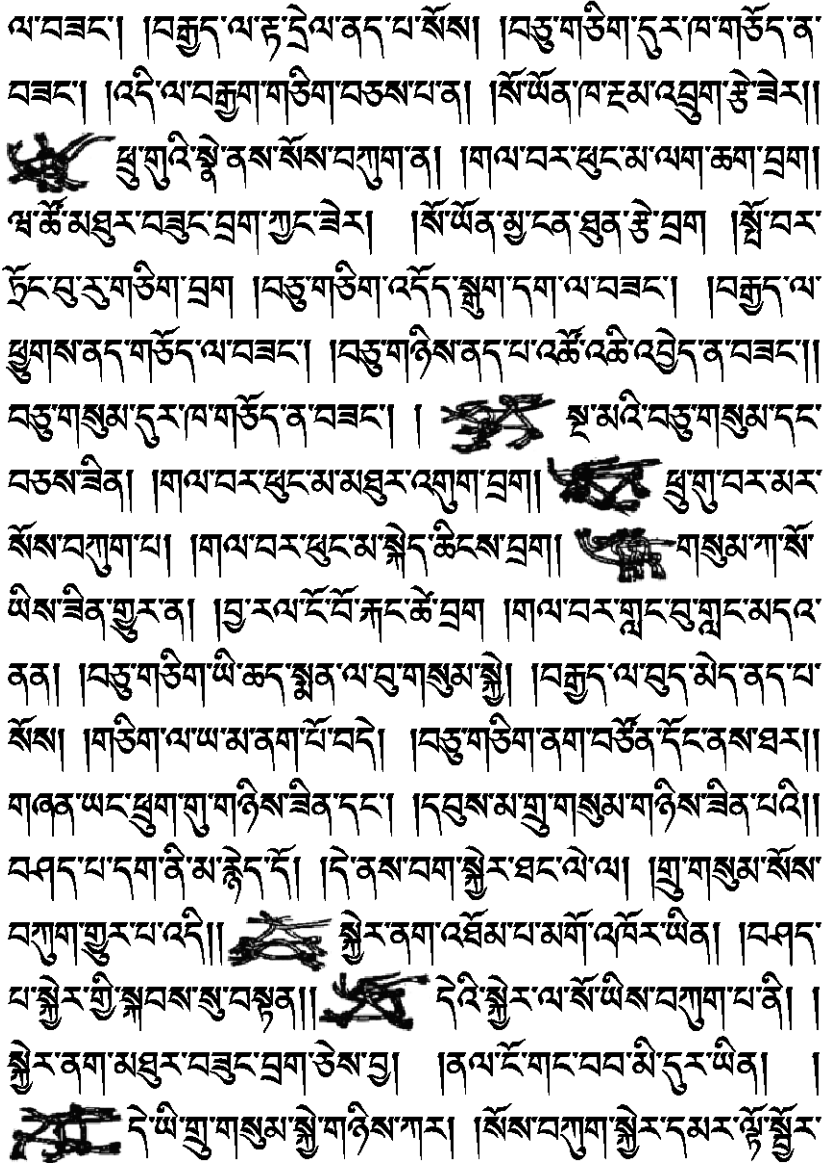 ལ་བཟང་། །བརྒྱད་ལ་རྟ་དྲེལ་ནད་པ་སོས། །བཅུ་གཅིག་དུར་ཁ་གཅོད་ན་
བཟང་། །འདི་ལ་བརྒྱག་གཅིག་བཅས་པ་ན། །སོ་ཡོན་ཁ་རྔམ་འབྲུག་རྩེ་ཟེར།།
ཕྲུ་གུའི་སྣེ་ནས་སོས་བཀུག་ན། །གལ་བར་ཕུང་མ་ལག་ཆག་བྲག།
ཝ་ཚོ་མཐུར་བཟུང་བྲག་ཀྱང་ཟེར། །སོ་ཡོན་མྱ་ངན་ཐུན་རྩེ་བྲག །སྤོ་བར་
ཏྲོང་བུ་རུ་གཅིག་བྲག །བཅུ་གཅིག་འདོད་སྒྲུག་དག་ལ་བཟང་། །བརྒྱད་ལ་
ཕྱུགས་ནད་གཅོད་ལ་བཟང་། །བཅུ་གཉིས་ནད་པ་འཚོ་འཆི་འབྱེད་ན་བཟང་།།
བཅུ་གསུམ་དུར་ཁ་གཅོད་ན་བཟང་། ། སྔ་མའི་བཅུ་གསུམ་དང་
བཅས་ཟིན། །གལ་བར་ཕུང་མ་མཐུར་འགུག་བྲག། ཕྲུ་གུ་བར་མར་
སོས་བཀུག་པ། །གལ་བར་ཕུང་མ་སྐེད་ཆིངས་བྲག། གསུམ་ཀ་སོ་
ཡིས་ཟིན་གྱུར་ན། །བྱ་རལ་ངོ་བོ་རྐང་ཚེ་བྲག །གལ་བར་གླང་བུ་གླང་མདའ་
ནན། །བཅུ་གཅིག་ཡི་ཆད་སྨན་ལ་བུ་གསུམ་སྐྱེ། །བརྒྱད་ལ་བུད་མེད་ནད་པ་
སོས། །གཅིག་ལ་ཡ་མ་ནག་པོ་བདེ། །བཅུ་གཅིག་ནག་བཙོན་དོང་ནས་ཐར།།
གཞན་ཡང་ཕྲུག་གུ་གཉིས་ཟིན་དང་། །དབུས་མ་གྲུ་གསུམ་གཉིས་ཟིན་པའི།།
བཤད་པ་དག་ནི་མ་རྙེད་དོ། །དེ་ནས་བག་སྐྱེར་ཐང་ལེ་ལ། །གྲུ་གསུམ་སོས་
བཀུག་གྱུར་པ་འདི།། སྐྱེར་ནག་འཐོམ་པ་མགོ་འཁོར་ཡིན། །བཤད་
པ་སྐྱེར་གྱི་སྐབས་སུ་བསྟན།། དེའི་སྐྱེར་ལ་སོ་ཡིས་བཀུག་པ་ནི། །
སྐྱེར་ནག་མཐུར་བཟུང་བྲག་ཅེས་བྱ། །ནལ་ངོ་གང་བབ་མི་དུར་ཡིན། །
དེ་ཡི་གྲུ་གསུམ་སྐྱེ་གཉིས་ཀར། །སོས་བཀུག་སྐྱེར་དམར་ལྟོ་སྦྱོར་